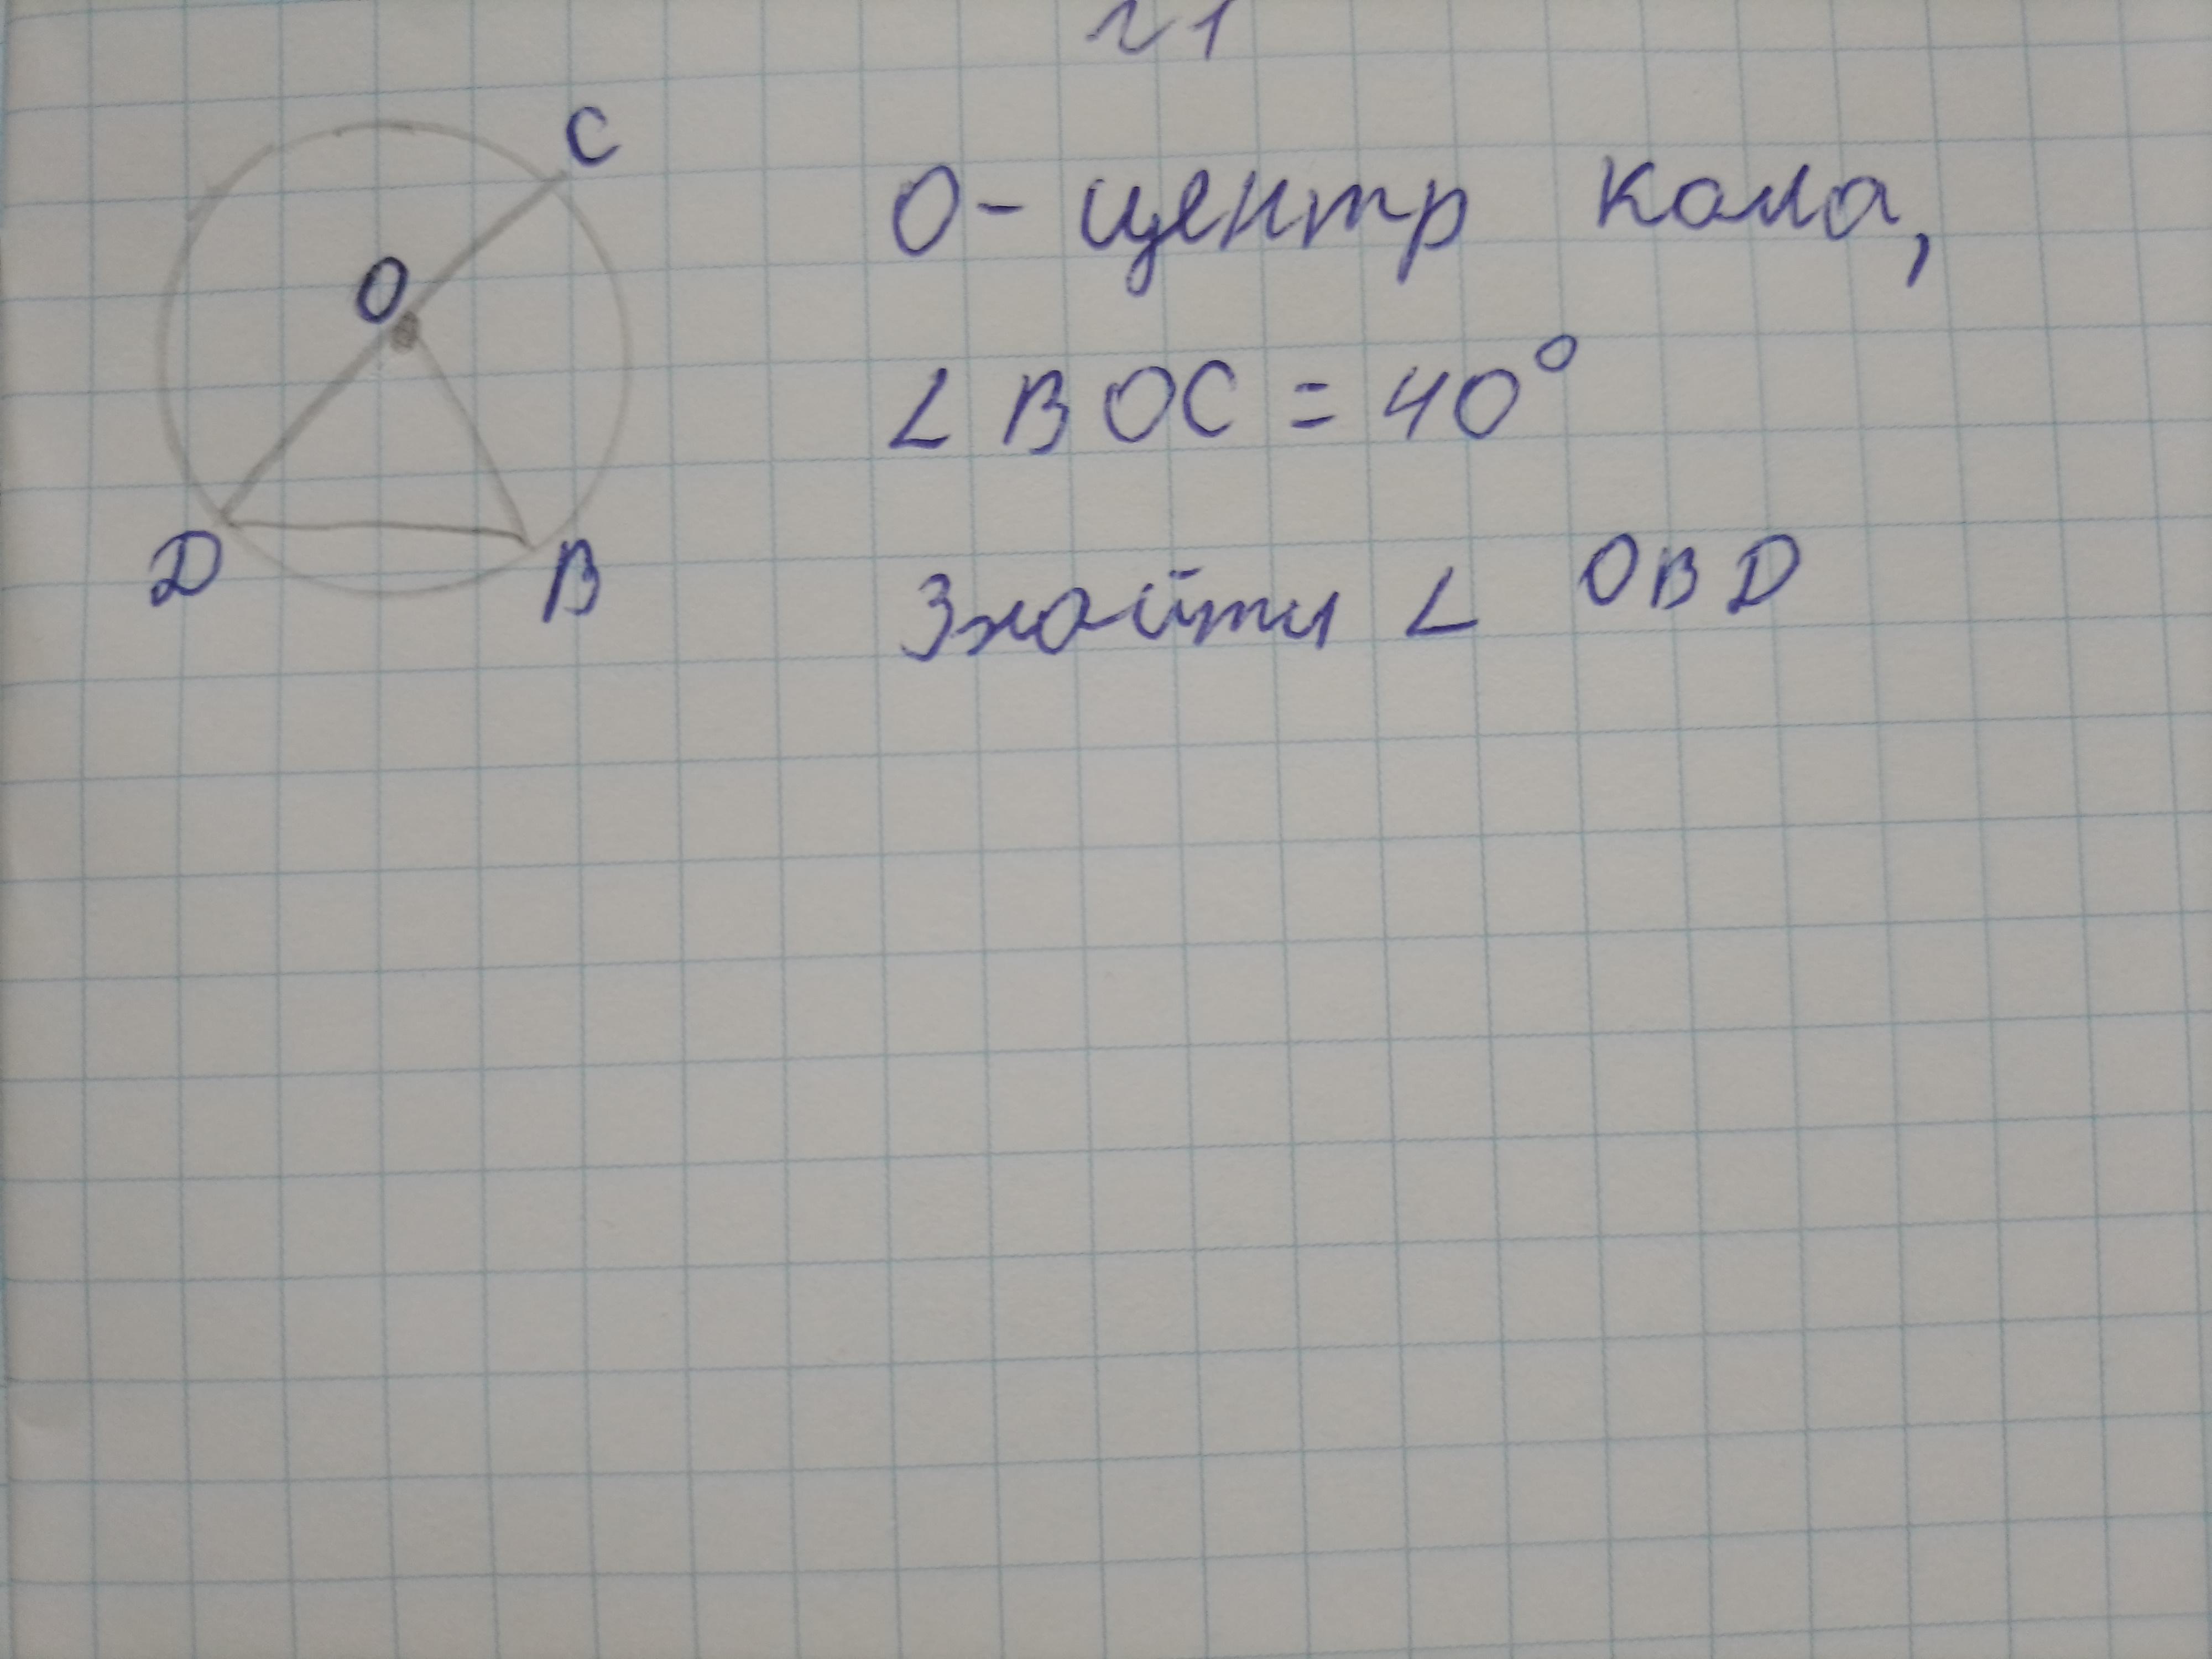 №1
C
O - центр кола,
O
∠ BOC = 40°
D
B
Знайти ∠ OBD